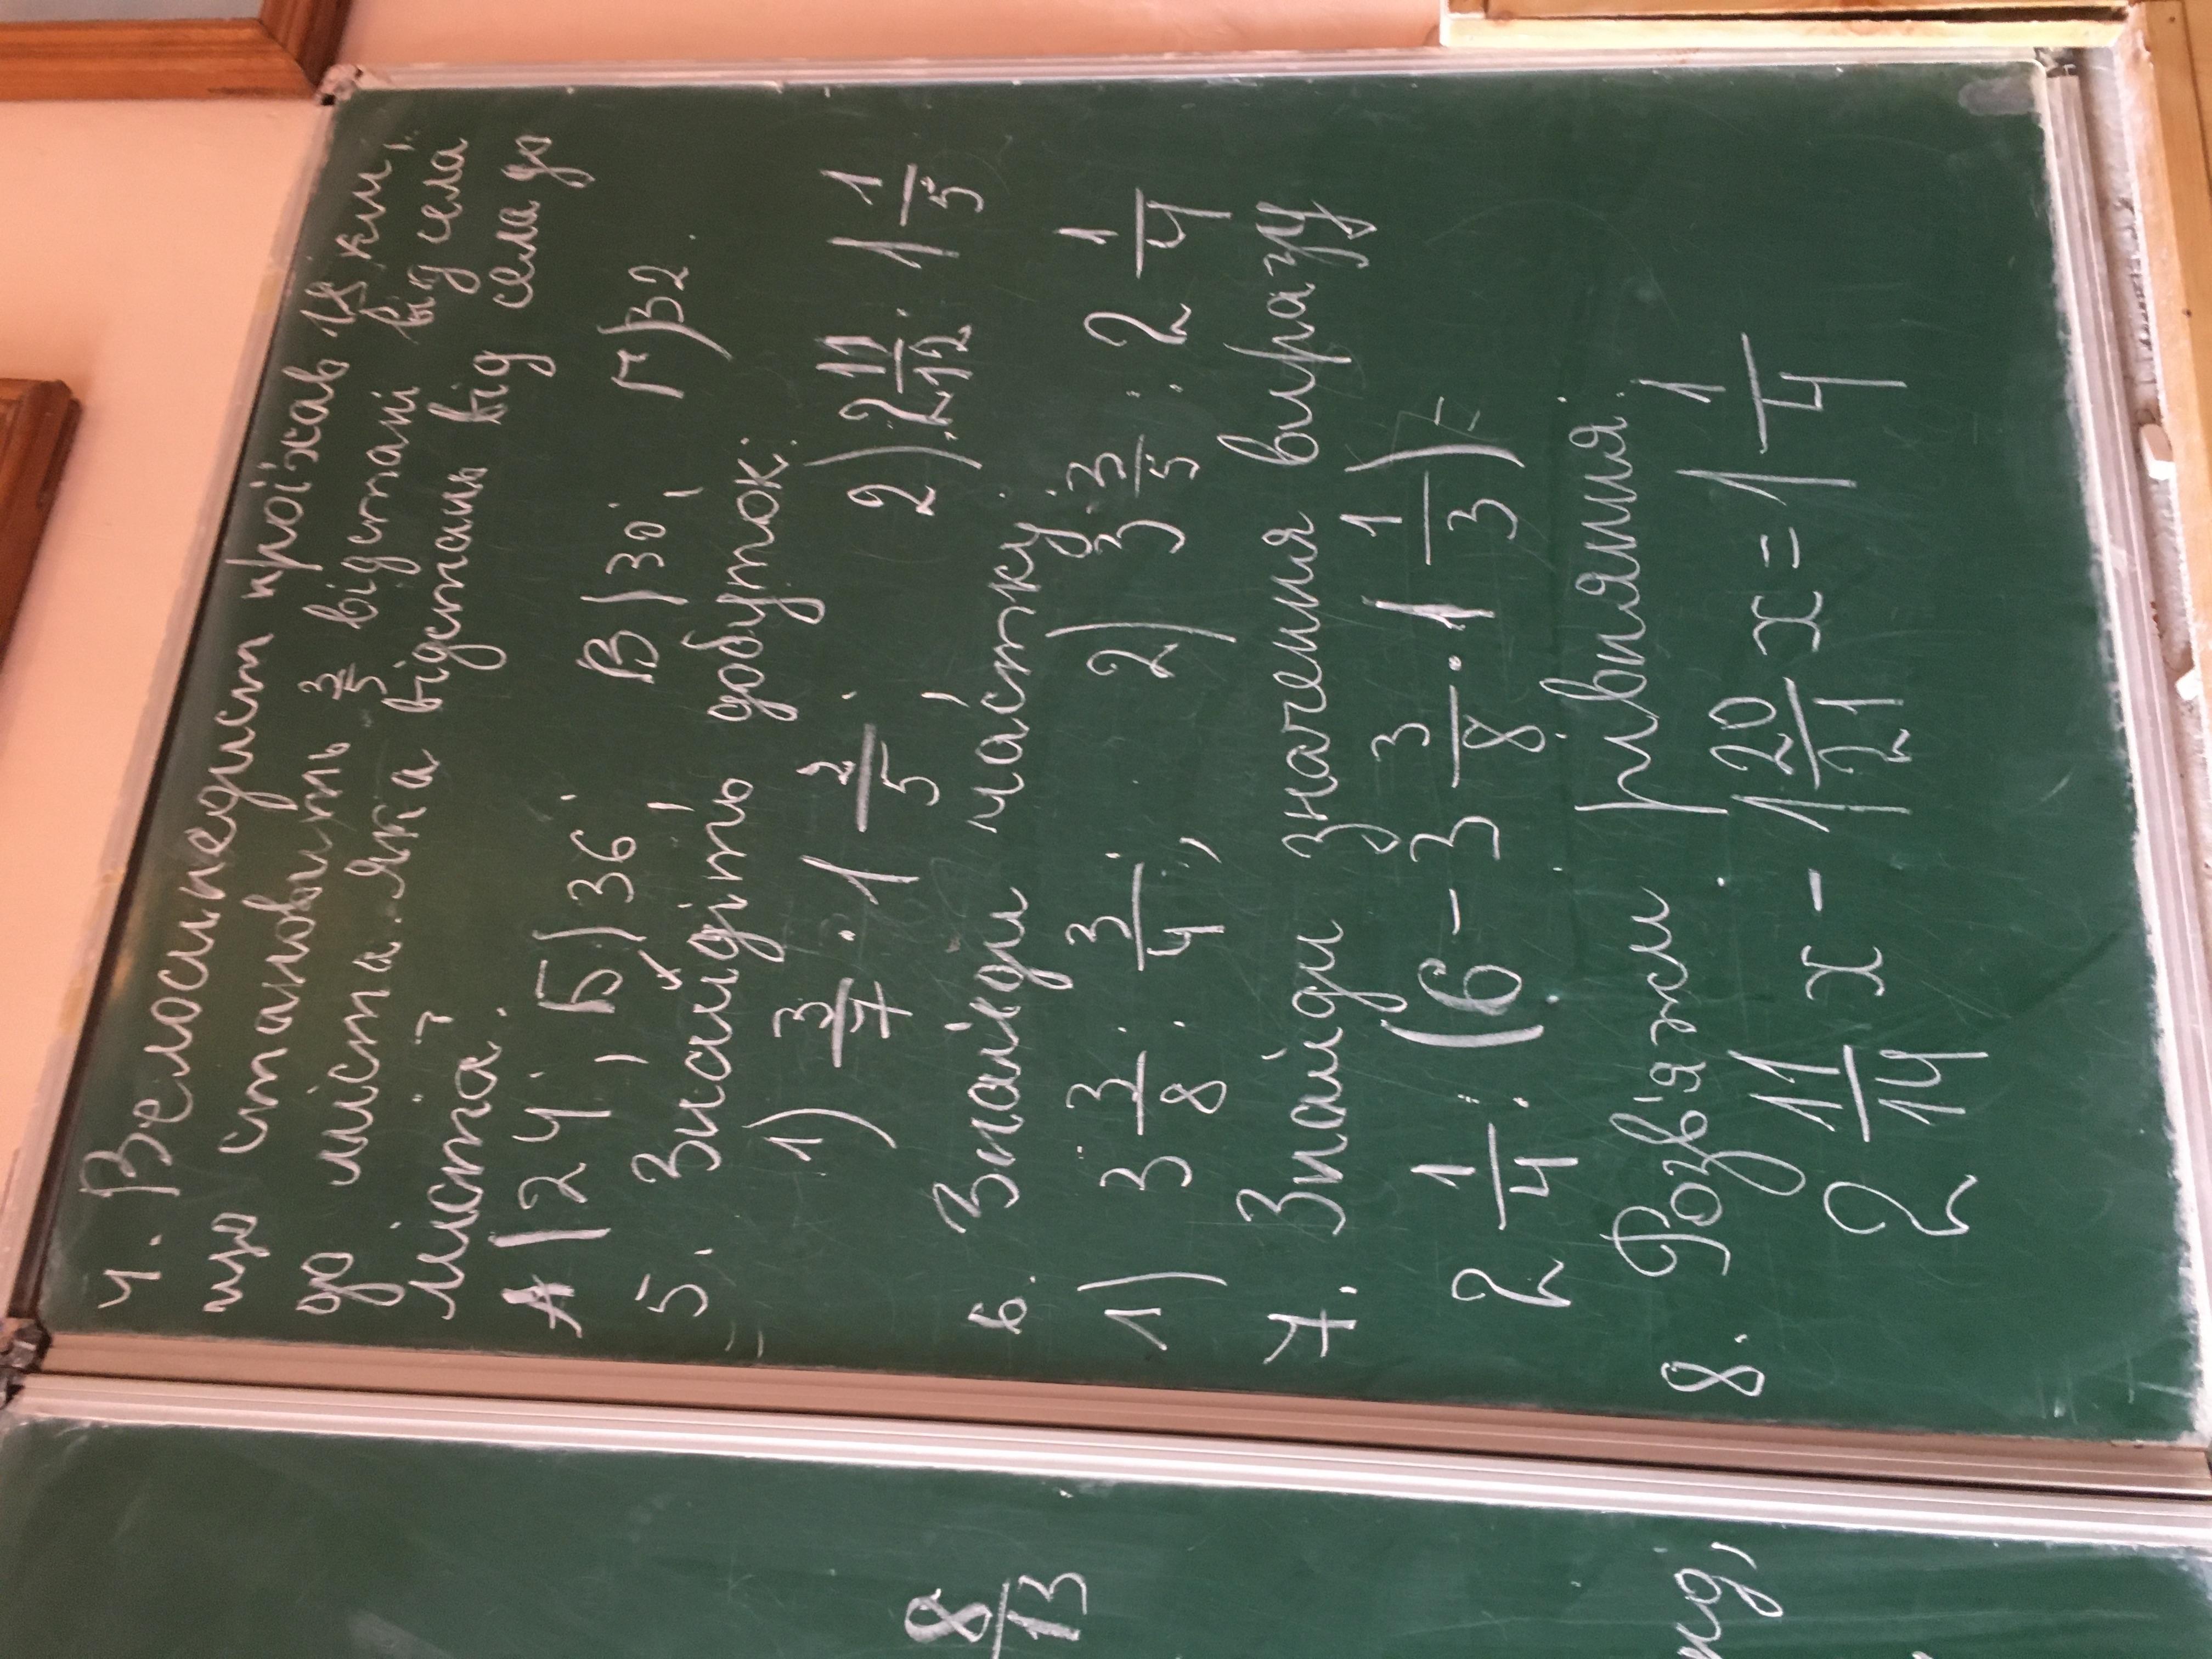 4. Велосипедист проїхав 18 км,
що становить 3/5 відстані від села
до міста. Яка відстань від села до
міста?
А) 24; Б) 36; В) 30; Г) 32.
5. Знайдіть добуток:
1) 3/7 · 1 2/5; 2) 2 11/12 · 1 1/5
6. Знайди частку:
1) 3 3/8 : 3/4; 2) 3 3/5 : 2 1/4
7. Знайди значення виразу
2 1/4 : (6 - 3 3/8 · 1 1/3) =
8. Розв'яжи рівняння:
2 11/14 x - 1 20/21 x = 1 1/4
8/13